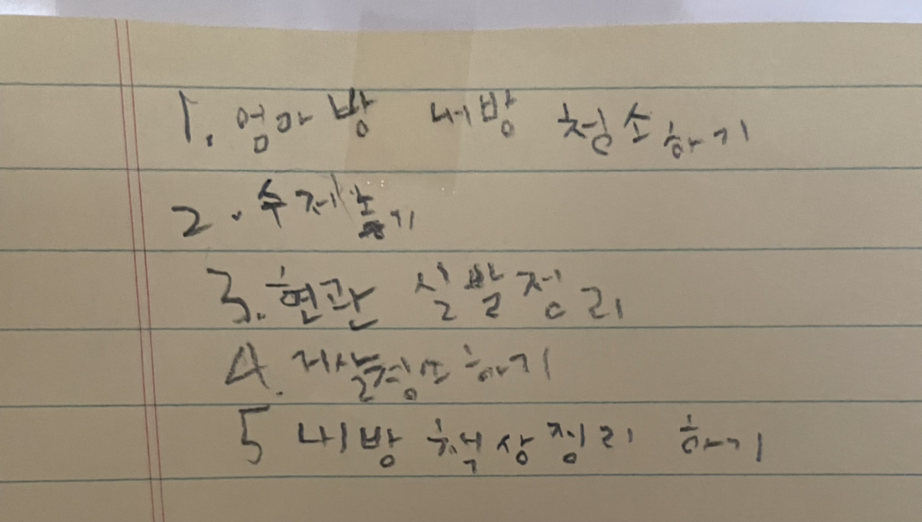 1. 엄마방 내방 청소하기
2. 수저놓기
3. 현관 실발정리
4. 거실청소하기
5 내방 책상정리 하기